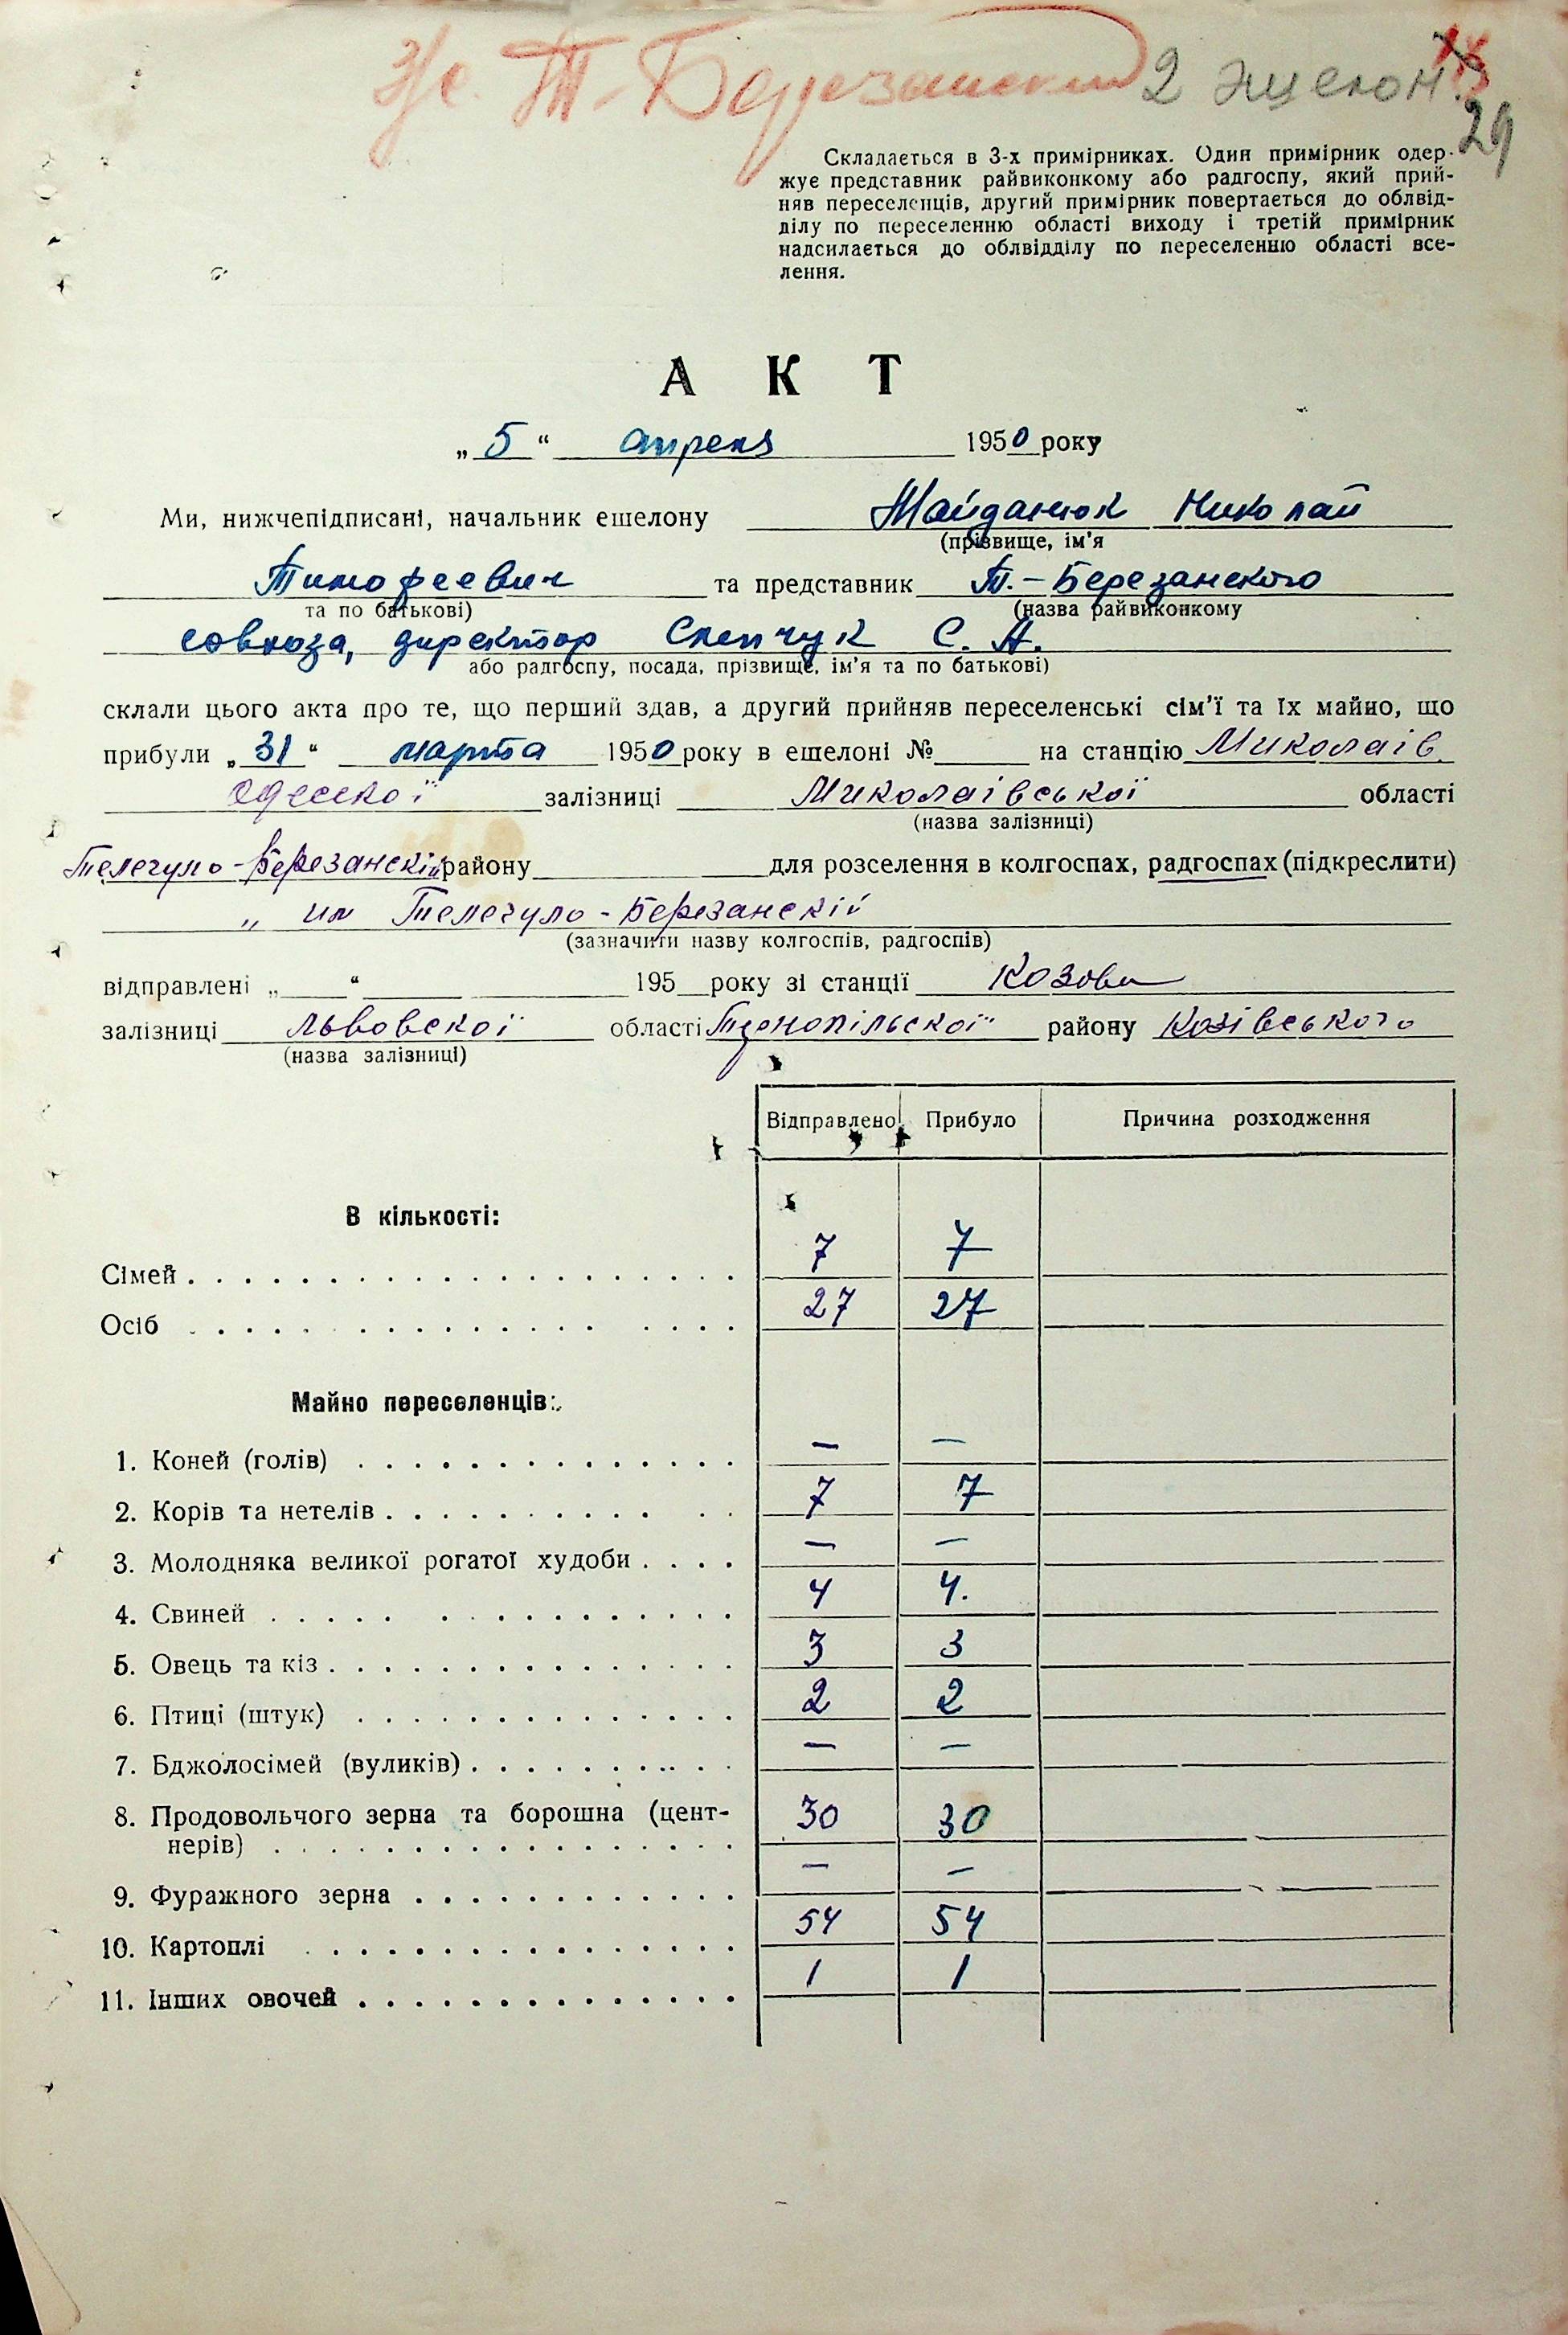 з/с. Т-Березанский 2 эшелон.
29
Складається в 3-х примірниках. Один примірник одер-
жує представник райвиконкому або радгоспу, який прий-
няв переселенців, другий примірник повертається до облвід-
ділу по переселенню області виходу і третій примірник
надсилається до облвідділу по переселенню області все-
лення.
АКТ
„5“ апреля 1950 року
Ми, нижчепідписані, начальник ешелону Майданюк Николай
(прізвище, ім'я
Тимофеевич та представник Т.-Березанского
та по батькові) (назва райвиконкому
совхоза, директор С. А.
або радгоспу, посада, прізвище, ім'я та по батькові)
склали цього акта про те, що перший здав, а другий прийняв переселенські сім'ї та їх майно, що
прибули „31“ марта 1950 року в ешелоні № на станцію Миколаїв
Одеської залізниці Миколаївської області
(назва залізниці)
Телегуло-Березанскій району для розселення в колгоспах, радгоспах (підкреслити)
„ им Телегуло-Березанскій
(зазначити назву колгоспів, радгоспів)
відправлені „ “ 195 року зі станції Козова
залізниці Львовской області Тернопільскої району Козівського
(назва залізниці)
Відправлено Прибуло Причина розходження
В кількості:
Сімей 7 7
Осіб 27 27
Майно переселенців:
1. Коней (голів) — —
2. Корів та нетелів 7 7
3. Молодняка великої рогатої худоби — —
4. Свиней 4 4.
5. Овець та кіз 3 3
6. Птиці (штук) 2 2
7. Бджолосімей (вуликів) — —
8. Продовольчого зерна та борошна (цент-
нерів) 30 30
9. Фуражного зерна — —
10. Картоплі 54 54
11. Інших овочей 1 1